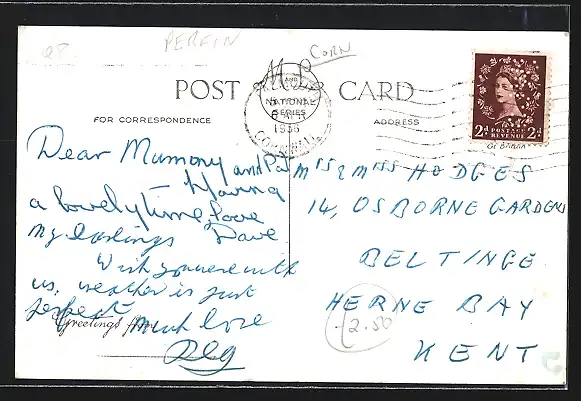 PERFIN
CORN
POST CARD
M & L
AND
NATIONAL
SERIES
1956
CORNWALL
FOR CORRESPONDENCE
ADDRESS
2d POSTAGE REVENUE 2d
Dear Mummy and Pat
Having
a lovely time, love
my darlings Dave
Wish you were with
us, weather is just
perfect
Greetings from
Much love
Reg
Mrs & Miss HODGES
14, OSBORNE GARDENS
BELTINGE
HERNE BAY
KENT
2.50